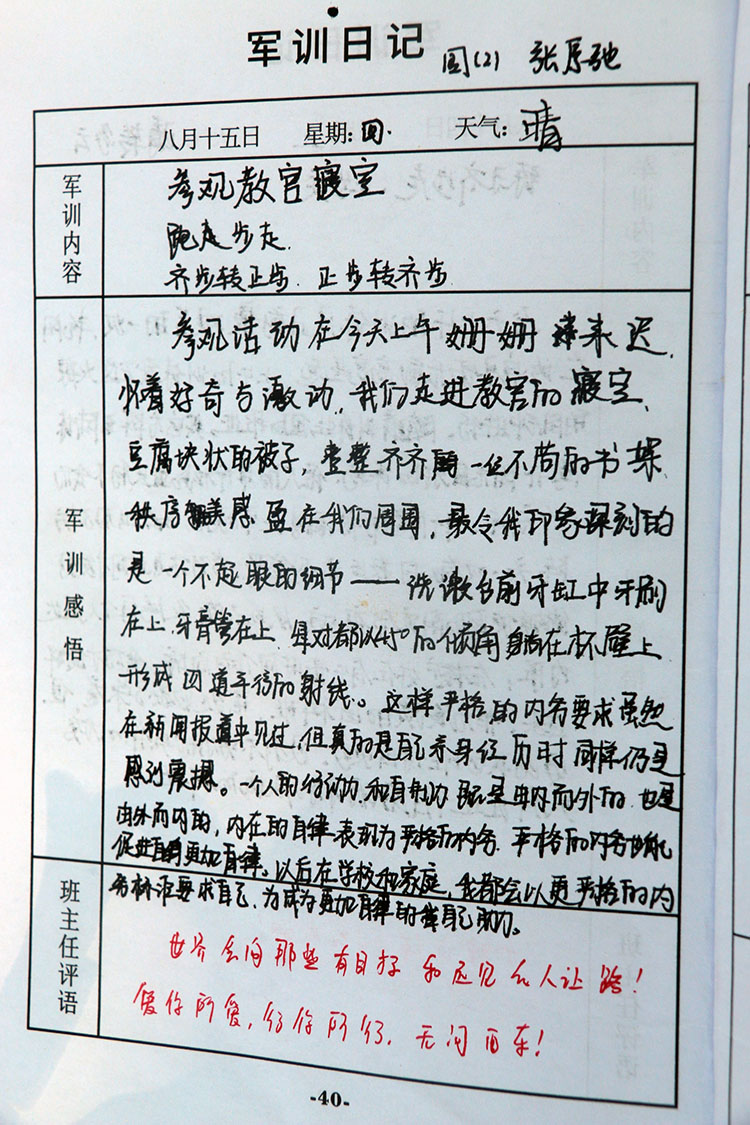 军训日记 (2) 张
八月十五日 星期:四. 天气:晴
军训内容
参观教官寝室
跑走步走.
齐步转正步. 正步转齐步
军训感悟
参观活动在今天上午姗姗来迟.
怀着好奇与激动,我们走进教官的寝室.
豆腐块状的被子,整整齐齐一丝不苟的书架
秩序美感盈在我们周围,最令我印象深刻的
是一个不起眼的细节——洗漱台前牙缸中牙刷
在上.牙膏管在上.绝对都以45°的倾角躺在杯壁上
形成四道平行的射线。这样严格的内务要求虽然
在新闻报道中见过,但真的是自己亲身经历时同样仍是
感到震撼。一个人的行动力和自制力既是由内而外的.也是
由外而内的,内在的自律表现为严格的内务.严格的内务也能
促进自身更加自律。以后在学校和家庭,我都会以更严格的内
务标准要求自己,为成为更加自律的自己助力。
班主任评语
世界会向那些有目标和远见的人让路!
爱你所爱,行你所行,无问西东!
-40-